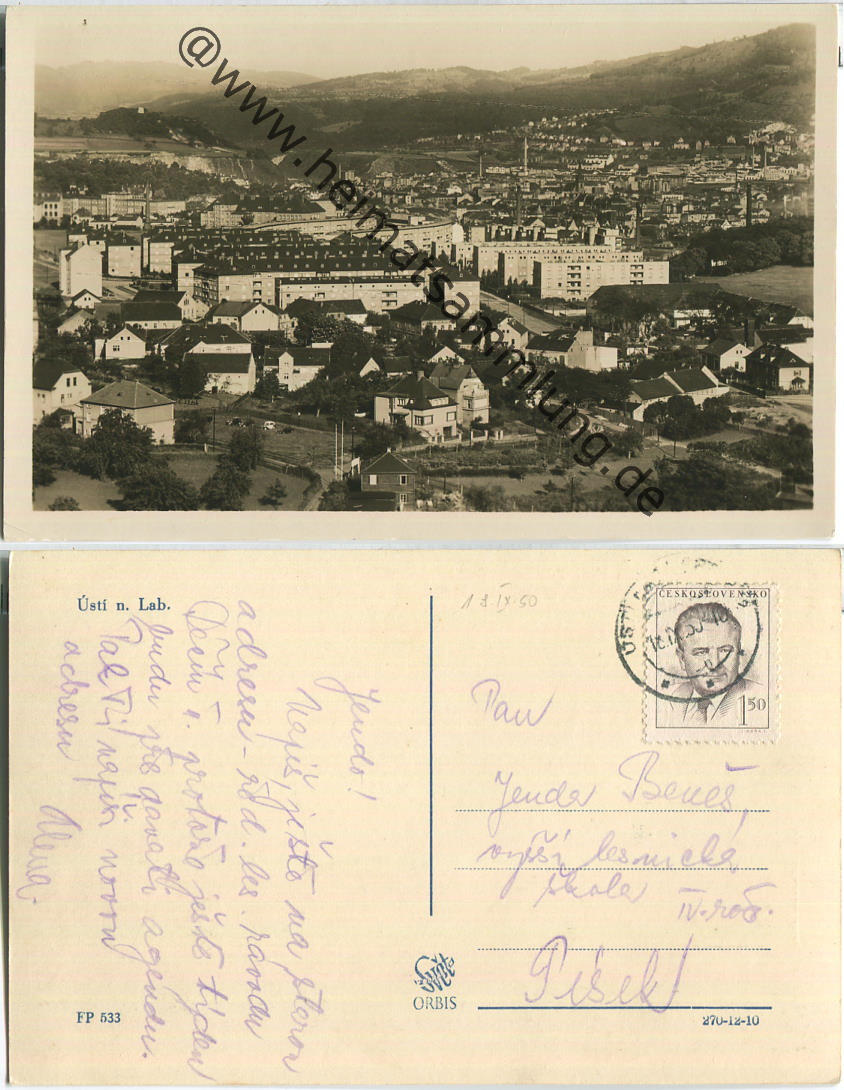 @www.heimatsammlung.de
Ústí n. Lab.
Jendo!
Napiš, ještě na starou
adresu - řed. les. závodu
Děčín 4. protože ještě týden
budu předávati agendu.
Pak Ti napíši novou
adresu
Alena.
FP 533
ORBIS
18 IX. 50
ČESKOSLOVENSKO
1 50
Pan
Jenda Beneš,
vyšší lesnická
škola IV. roč.
Písek
270-12-10